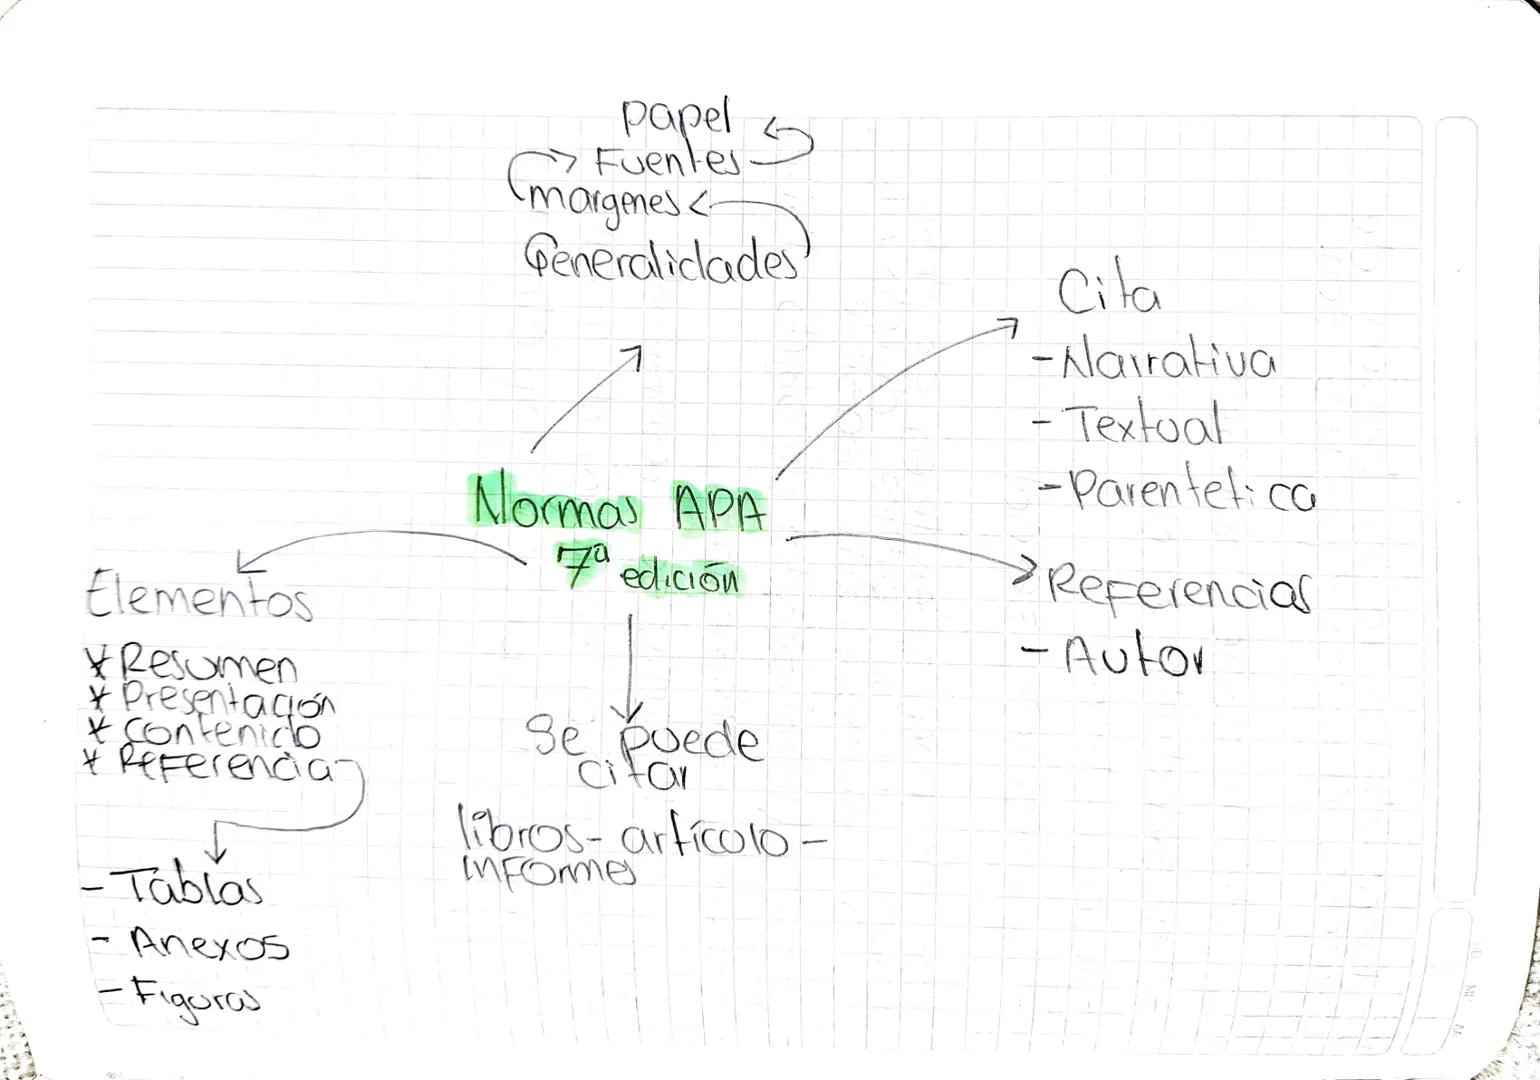 papel
Fuentes
margenes
Generalidades
Cita
- Narrativa
- Textual
- Parentetica
Normas APA
7ª edición
Referencias
- Autor
Elementos
* Resumen
* Presentación
* contenido
* Referencia
- Tablas
- Anexos
- Figuras
Se puede
citar
libros - artículo -
informes